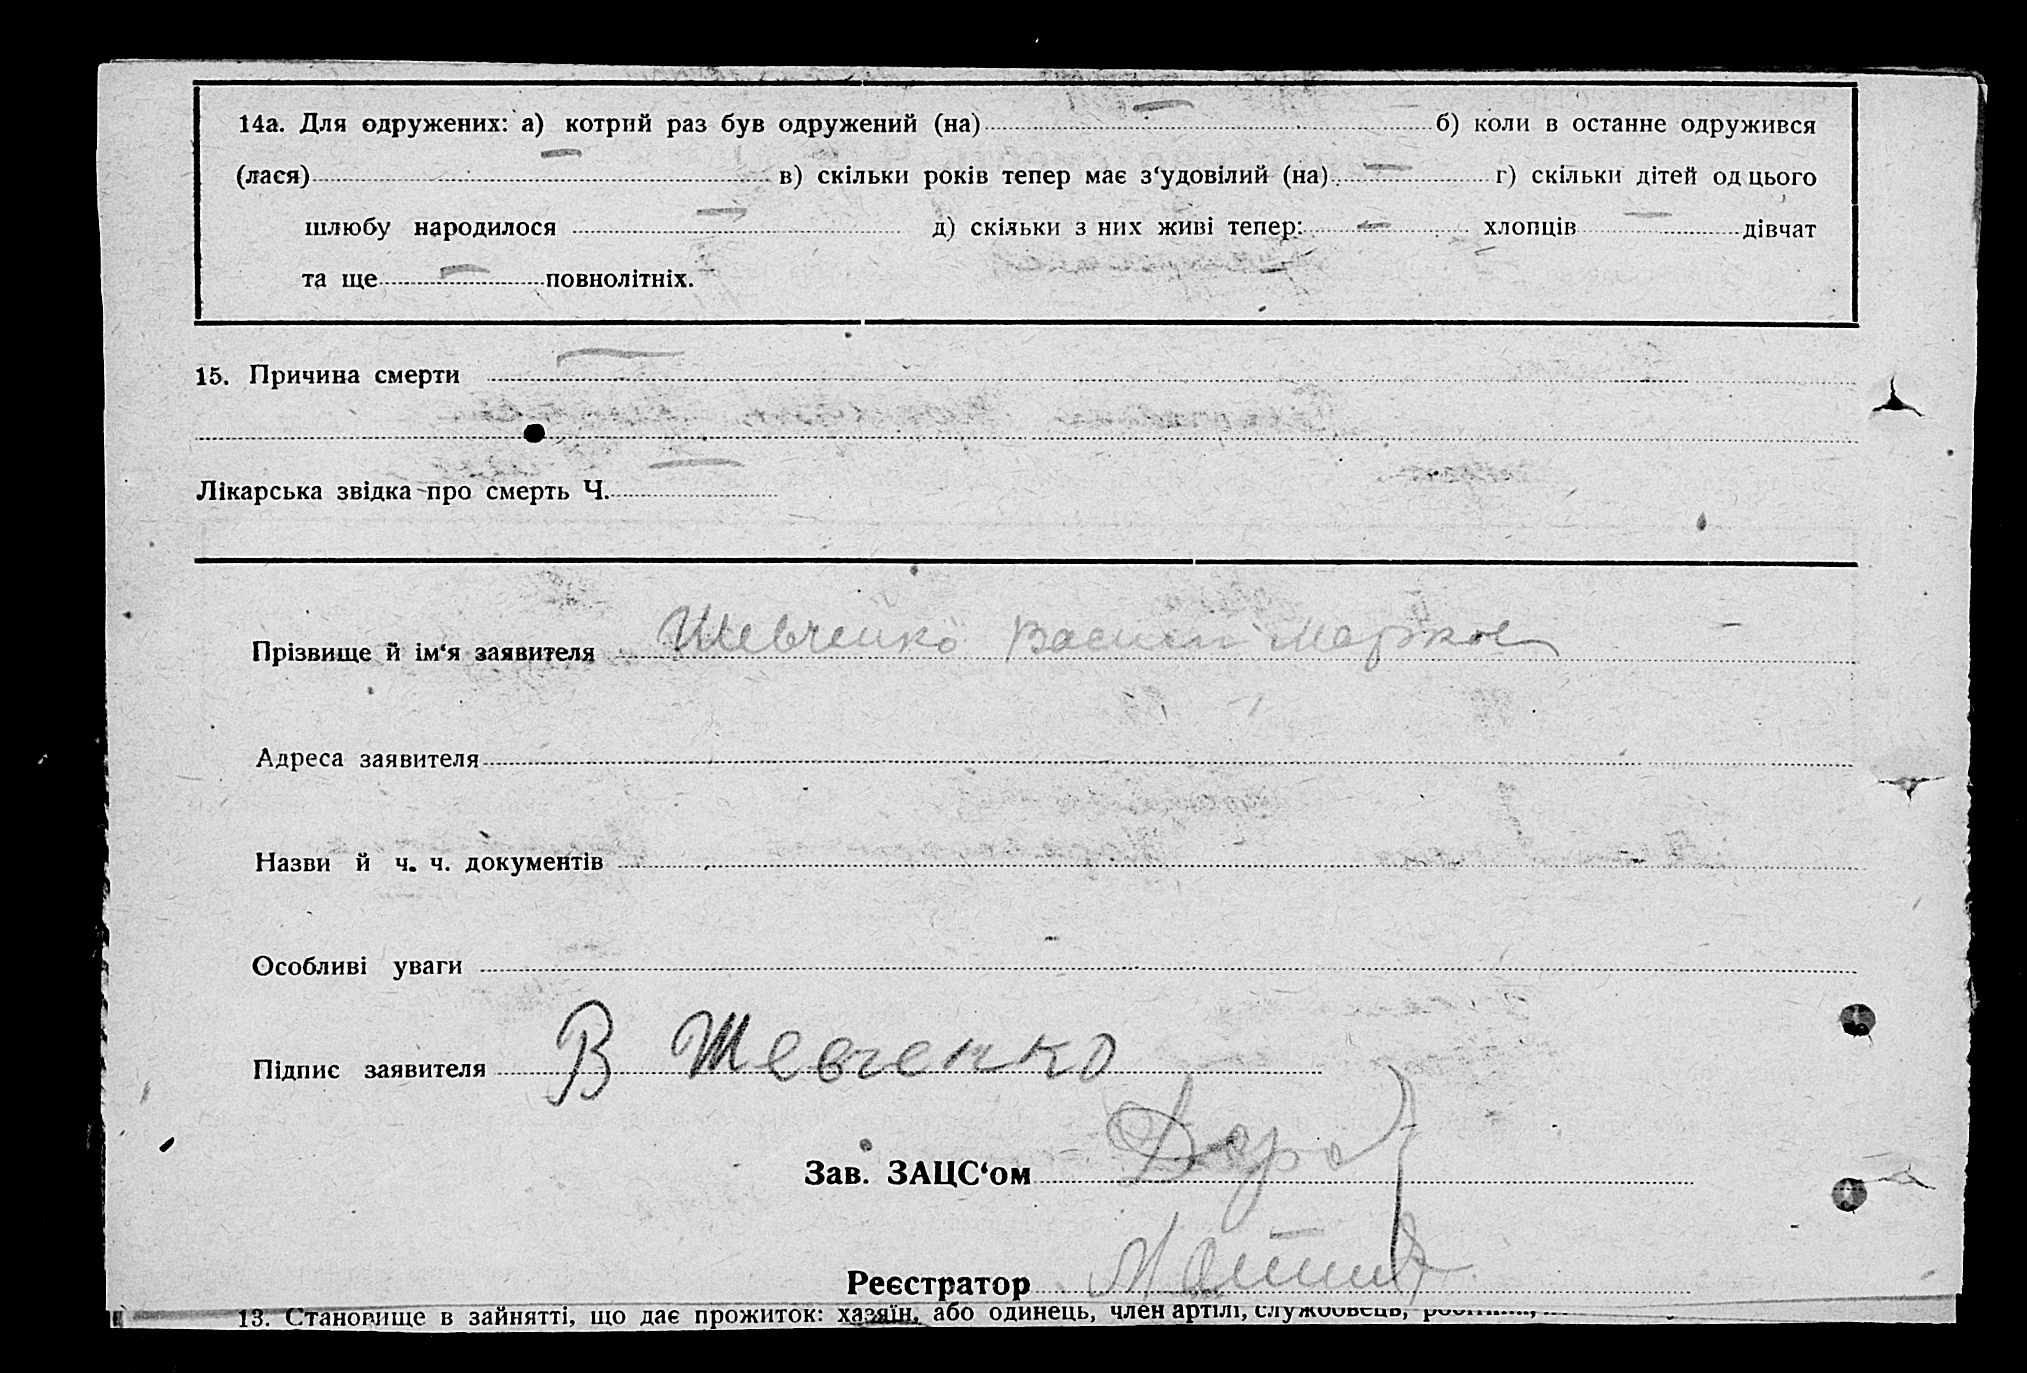 14а. Для одружених: а) котрий раз був одружений (на) — б) коли в останнє одружився
(лася) — в) скільки років тепер має з‘удовілий (на) — г) скільки дітей од цього
шлюбу народилося — д) скільки з них живі тепер: — хлопців — дівчат
та ще — повнолітніх.
15. Причина смерти —
Лікарська звідка про смерть Ч. —
Прізвище й ім‘я заявителя Шевченко Васил
Адреса заявителя
Назви й ч. ч. документів
Особливі уваги
Підпис заявителя В Шевченко
Зав. ЗАЦС‘ом
Реєстратор
13. Становище в зайнятті, що дає прожиток: хазяїн, або одинець, член артілі, службовець,